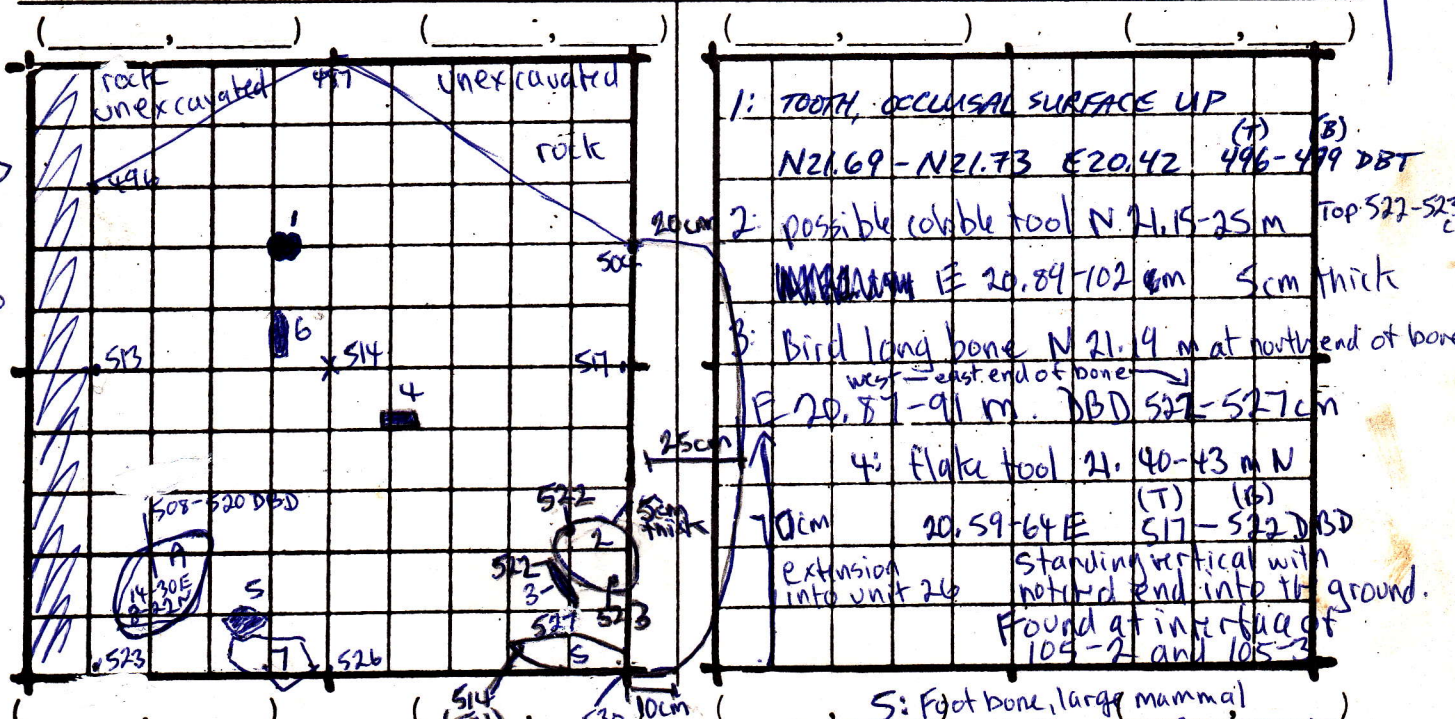 (______,______) (______,______) (______,______) (______,______)
rock
unexcavated
497
unexcavated
rock
496
1
20cm
504
6
513
514
517
4
25cm
508-520 DBD
522
5cm
thick
2
A
14-30E
8-22N
522
3-
527
523
5
7
5
523
526
514
10cm
1: TOOTH, OCCLUSAL SURFACE UP
(T) (B)
N21.69-N21.73 E20.42 496-499 DBT
2: possible cobble tool N 21.15-25 m Top 522-523
E 20.84-102 cm 5cm thick
3: Bird long bone N 21.19 m at north end of bone
west - east end of bone
E 20.87-91 m. DBD 522-527cm
4: flake tool 21.40-43 m N
(T) (B)
70cm 20.59-64 E 517-522 DBD
extension
into unit 26
Standing vertical with
notched end into the ground.
Found at interface of
105-2 and 105-3
5: Foot bone, large mammal